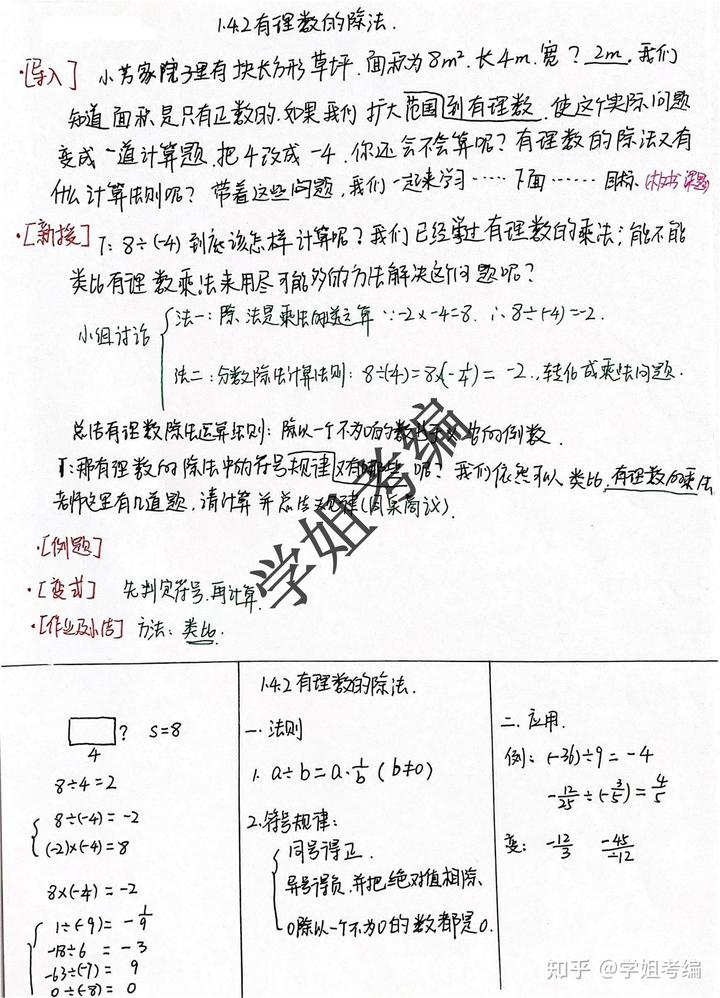 1.4.2有理数的除法.
·[导入] 小芳家院子里有块长方形草坪.面积为8m².长4m.宽？2m，我们
知道面积是只有正数的.如果我们扩大范围到有理数.使这个实际问题
变成一道计算题.把4改成-4.你还会不会算呢？有理数的除法又有
什么计算法则呢？带着这些问题，我们一起来学习……下面……目标.(板书课题)
·[新授] T: 8÷(-4)到底该怎样计算呢？我们已经学过有理数的乘法；能不能
类比有理数乘法来用尽可能多的方法解决这个问题呢？
小组讨论
法一：除法是乘法的逆运算 ∵-2×-4=8. ∴8÷(-4)=-2.
法二：分数除法计算法则：8÷(-4)=8×(-1/4)=-2.，转化成乘法问题.
总结有理数除法运算法则：除以一个不为0的数 的倒数.
T:那有理数的除法中的符号规律又有哪些呢？我们依然可以类比有理数的乘法.
老师这里有几道题，请计算并总结规律(同桌商议).
·[例题]
·[变式] 先判定符号.再计算.
·[作业及小结] 方法：类比.
学姐考编
? s=8
4
8÷4=2
8÷(-4)=-2
(-2)×(-4)=8
8×(-1/4)=-2
1÷(-9)=-1/9
-18÷6=-3
-63÷(-7)=9
0÷(-8)=0
1.4.2有理数的除法.
一.法则
1. a÷b=a·1/b (b≠0)
2.符号规律：
同号得正.
异号得负.并把绝对值相除.
0除以一个不为0的数都是0.
二.应用.
例：(-36)÷9=-4
-12/25÷(-3/5)=4/5
变：-12/3 -45/-12
知乎 @学姐考编